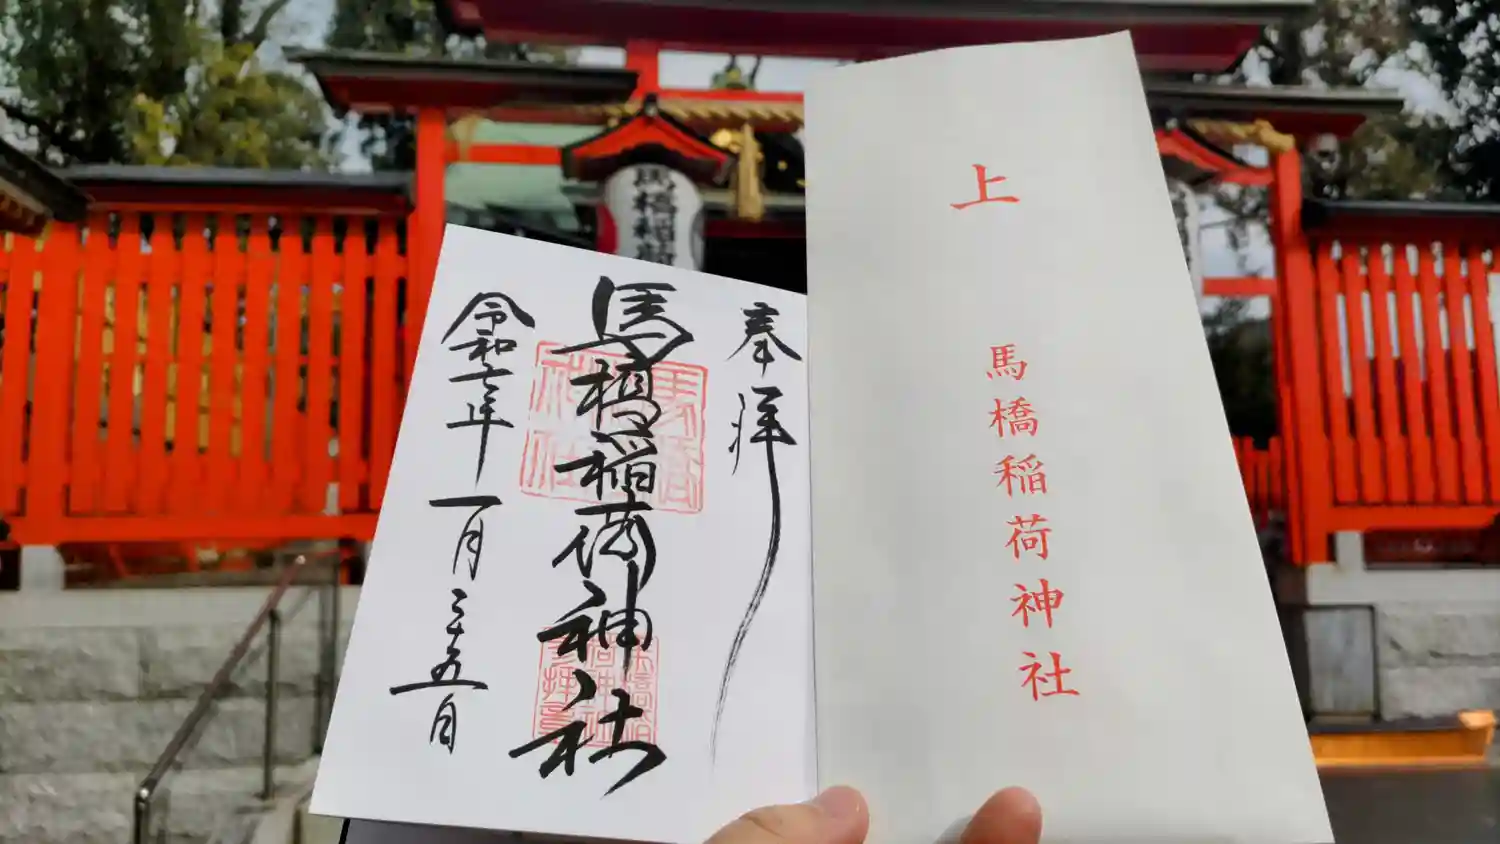 奉拝
馬橋稲荷神社
令和七年一月二十五日
上
馬橋稲荷神社
馬橋稲荷